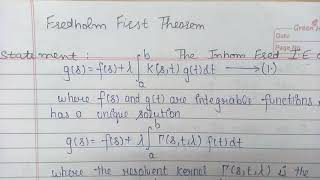 Fredholm First Theorem
Green
Date
Page No
Statement : The Inhom Fred I.E
g(s) = f(s) + λ ∫_a^b K(s,t) g(t) dt → (1.)
where f(s) and g(t) are integrable functions,
has a unique solution
g(s) = f(s) + λ ∫_a^b Γ(s,t,λ) f(t) dt
where the resolvent kernel Γ(s,t,λ) is the